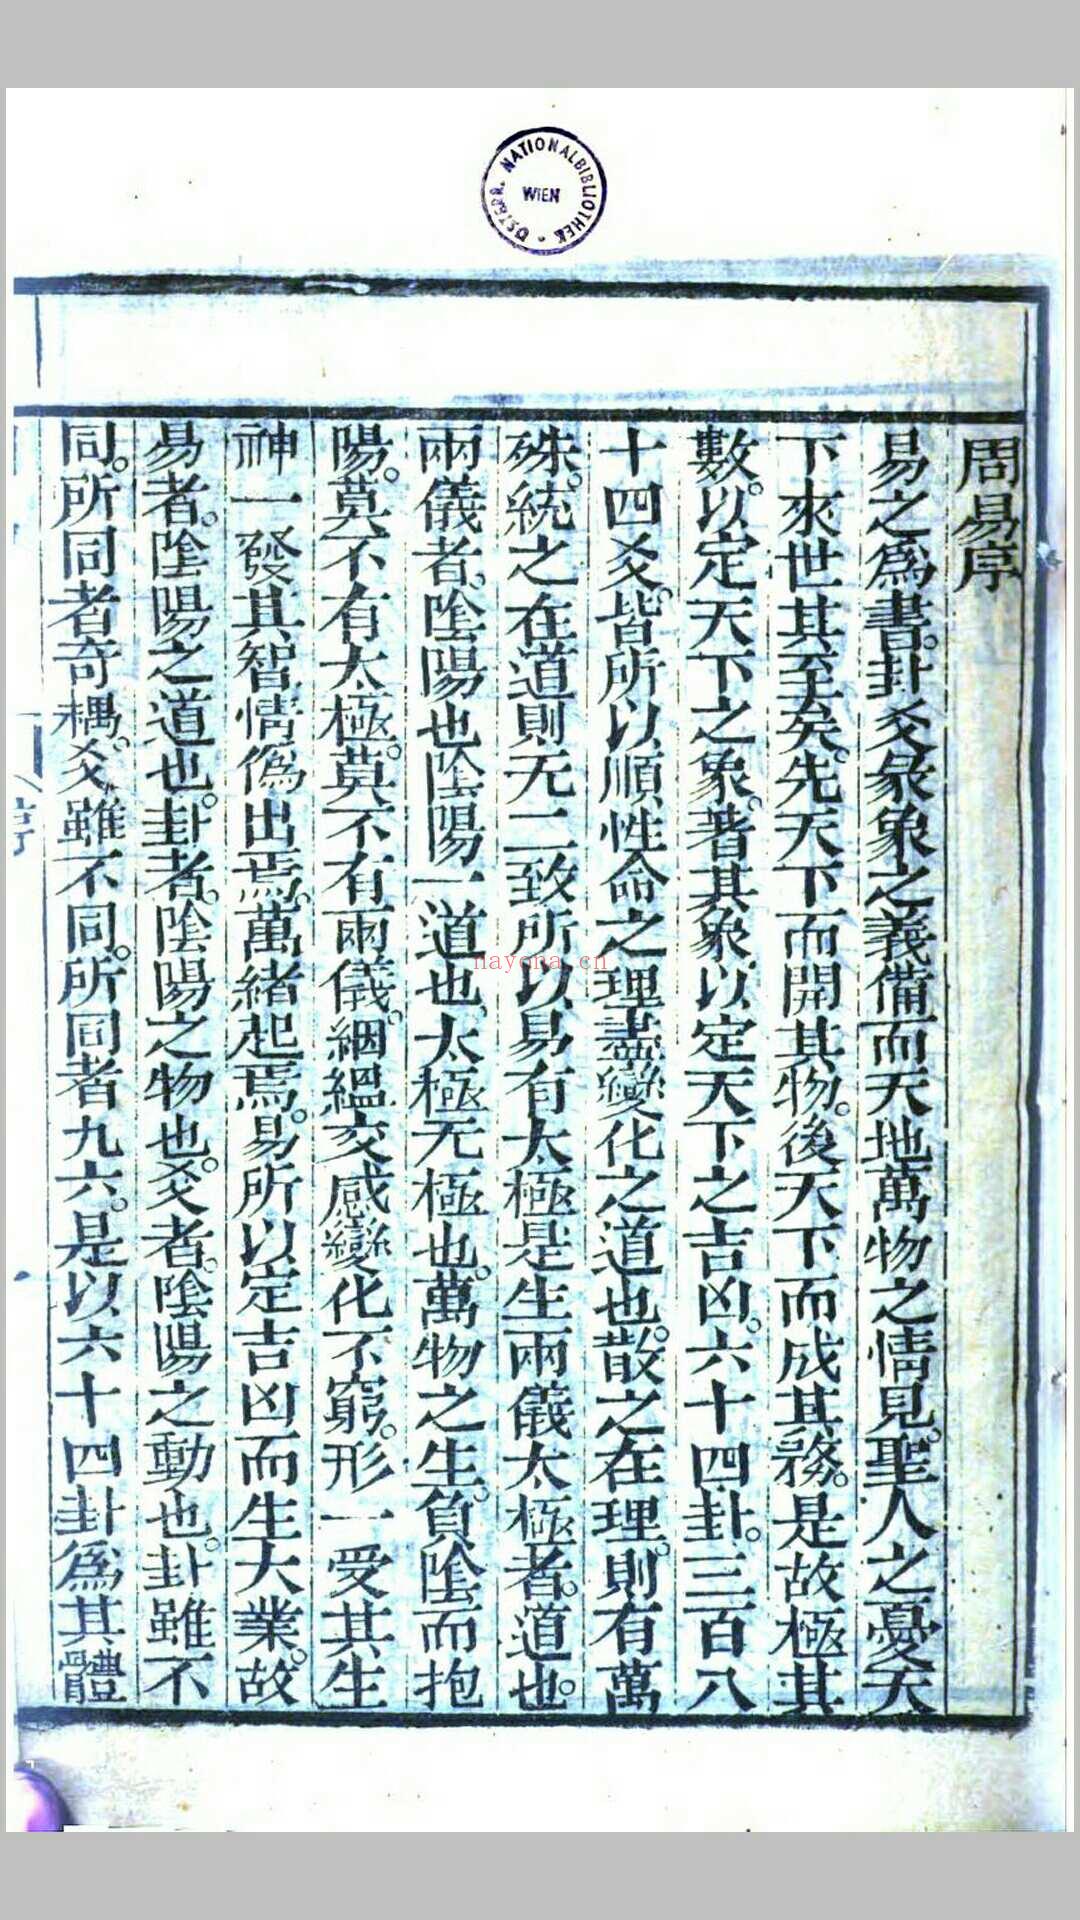 ÖSTERR. NATIONALBIBLIOTHEK
WIEN
周易序
易之爲書。卦爻彖象之義備而天地萬物之情見。聖人之憂天
下來世其至矣。先天下而開其物。後天下而成其務。是故極其
數。以定天下之象。著其象。以定天下之吉凶。六十四卦。三百八
十四爻。皆所以順性命之理盡變化之道也。散之在理。則有萬
殊。統之在道則无二致所以易有太極是生兩儀太極者。道也。
兩儀者。陰陽也陰陽一道也。太極无極也。萬物之生。負陰而抱
陽。莫不有太極。莫不有兩儀。絪縕交感變化不窮。形一受其生
神一發其智情僞出焉。萬緒起焉。易所以定吉凶而生大業。故
易者。陰陽之道也。卦者。陰陽之物也。爻者。陰陽之動也。卦雖不
同。所同者奇耦。爻雖不同。所同者九六。是以六十四卦爲其體
序
nayona.cn